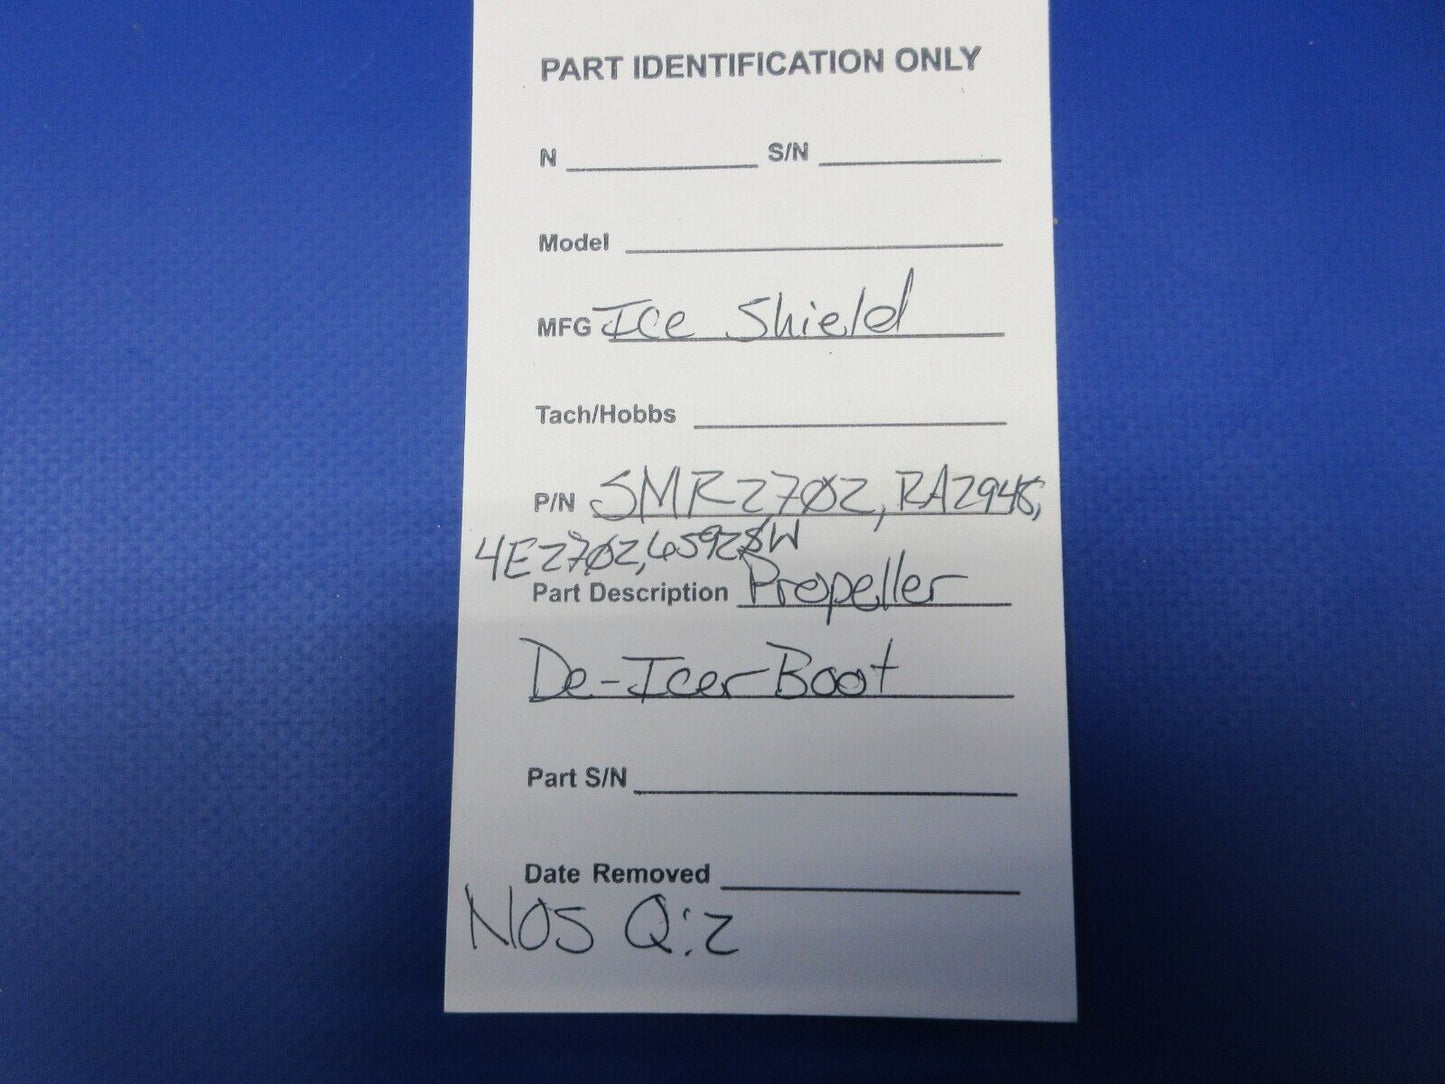 PART IDENTIFICATION ONLY
N S/N
Model
MFG Ice Shield
Tach/Hobbs
P/N SMR2702, RA2948,
4E2702, 65928W
Part Description Propeller
De-Icer Boot
Part S/N
Date Removed
NOS Q:2